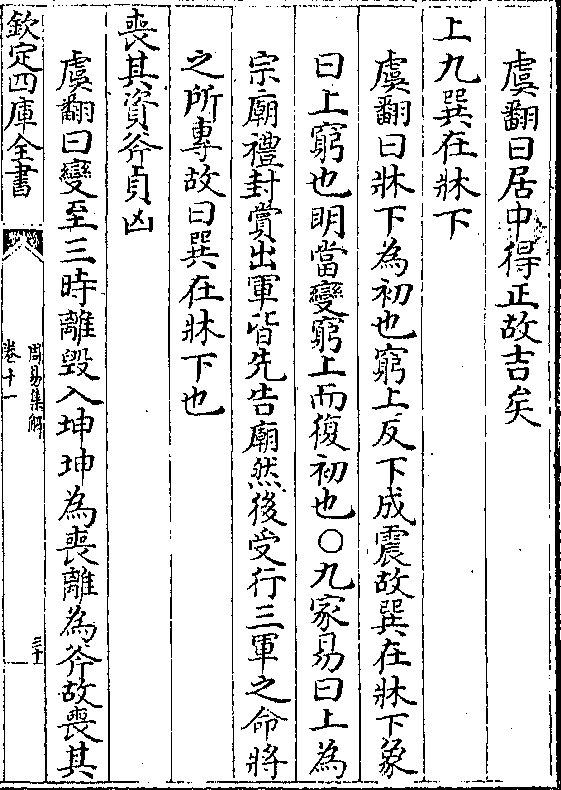 虞翻曰居中得正故吉矣
上九巽在牀下
虞翻曰牀下為初也窮上反下成震故巽在牀下象
曰上窮也明當變窮上而復初也○九家易曰上為
宗廟禮封賞出軍皆先告廟然後受行三軍之命將
之所專故曰巽在牀下也
喪其資斧貞凶
虞翻曰變至三時離毀入坤坤為喪離為斧故喪其
欽定四庫全書
周易集解
卷十一
三十